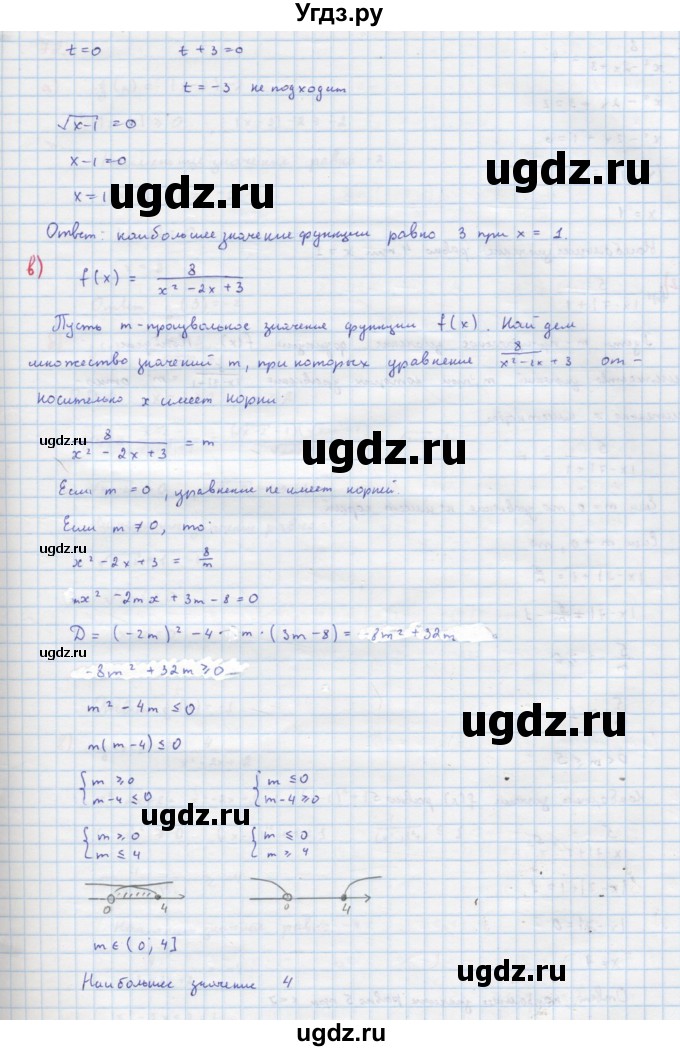 Угдз.ру
t = 0    t + 3 = 0
t = -3 не подходит
√x-1 = 0
x - 1 = 0
ugdz.ru
x = 1
ugdz.ru
ugdz.ru
Ответ: наибольшее значение функции равно 3 при x = 1.
в) f(x) = 8/(x² - 2x + 3)
Пусть m - произвольное значение функции f(x). Найдем
множество значений m, при которых уравнение 8/(x² - 2x + 3) от-
носительно x имеет корни:
ugdz.ru
8/(x² - 2x + 3) = m
ugdz.ru
Если m = 0, уравнение не имеет корней.
Если m ≠ 0, то:
ugdz.ru
x² - 2x + 3 = 8/m
mx² - 2mx + 3m - 8 = 0
D = (-2m)² - 4 · m · (3m - 8) = -8m² + 32m
ugdz.ru
-8m² + 32m ≥ 0
m² - 4m ≤ 0
ugdz.ru
m(m - 4) ≤ 0
{ m ≥ 0    { m ≤ 0
{ m - 4 ≤ 0    { m - 4 ≥ 0
ugdz.ru
{ m ≥ 0    { m ≤ 0
{ m ≤ 4    { m ≥ 4
0 4    0 4
m ∈ (0; 4]
ugdz.ru
Наибольшее значение 4
ugdz.ru
ugdz.ru